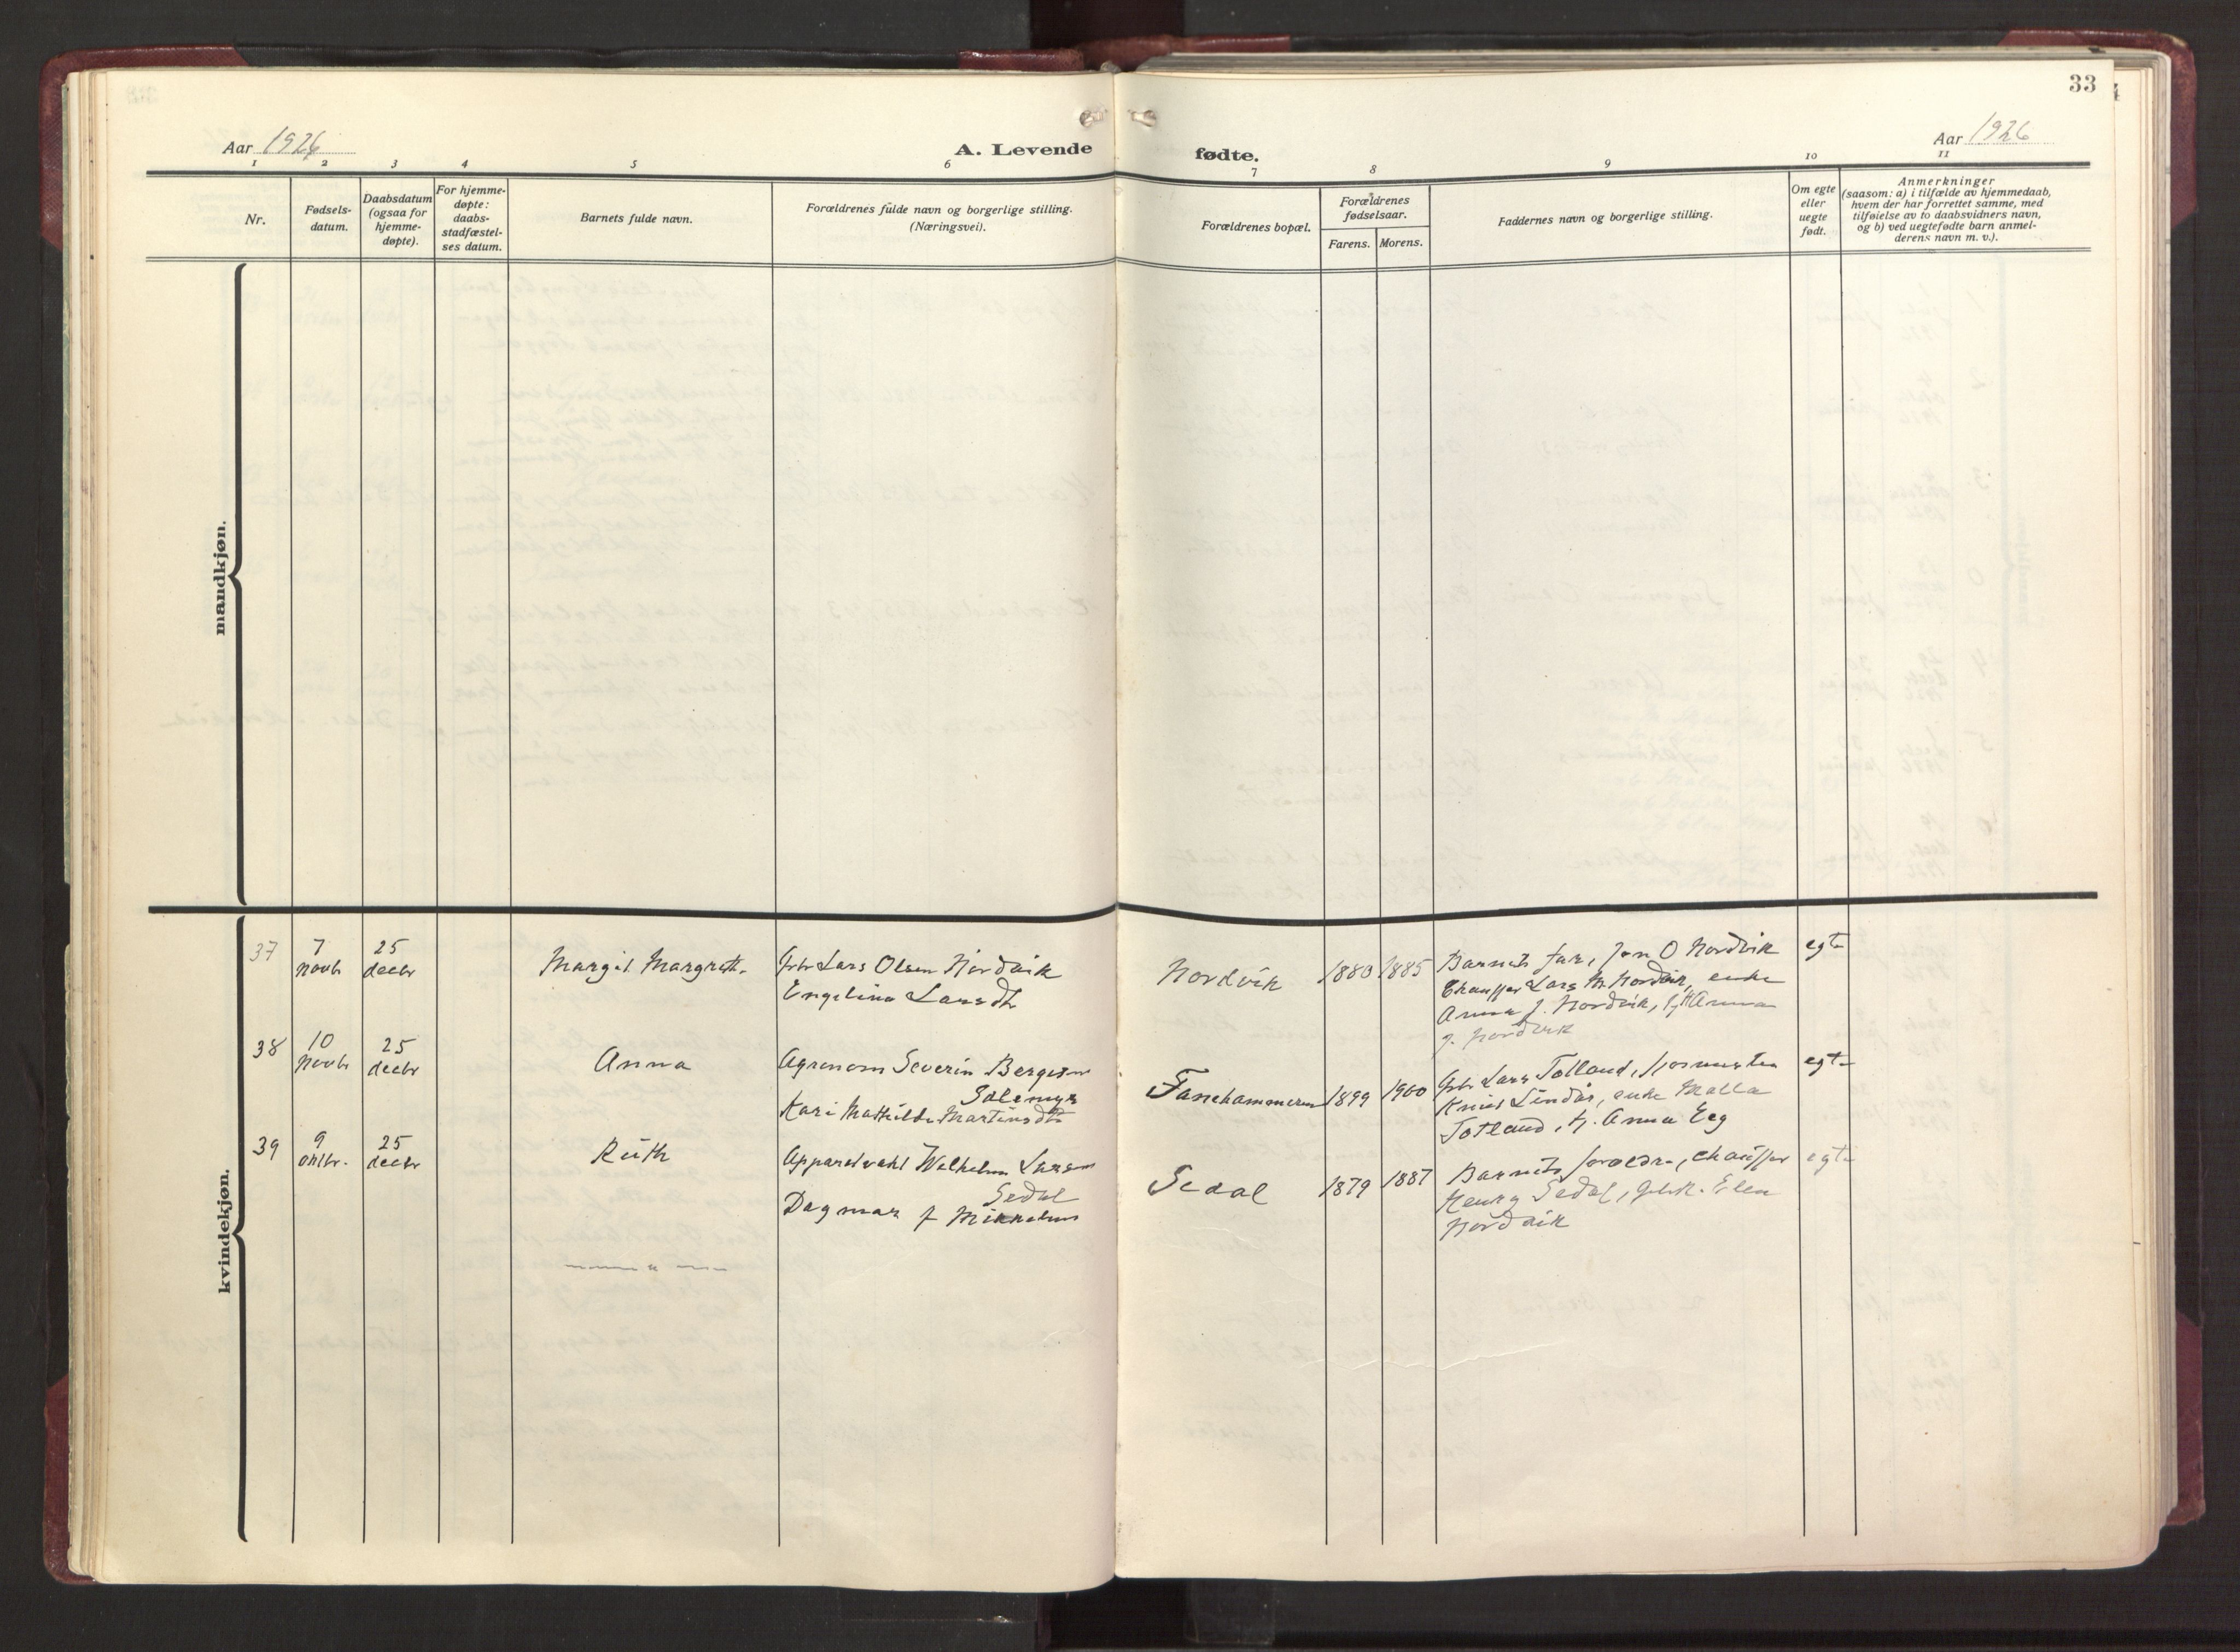 33
Aar 1926
A. Levende
fødte.
Aar 1926
1 2 3 4 5 6 7 8 9 10 11
Nr.
Fødsels-
datum.
Daabsdatum
(ogsaa for
hjemme-
døpte).
For hjemme-
døpte:
daabs-
stadfæstel-
ses datum.
Barnets fulde navn.
Forældrenes fulde navn og borgerlige stilling.
(Næringsvei).
Forældrenes bopæl.
Forældrenes
fødselsaar.
Farens. Morens.
Faddernes navn og borgerlige stilling.
Om egte
eller
uegte
født.
Anmerkninger
(saasom: a) i tilfælde av hjemmedaab,
hvem der har forrettet samme, med
tilføielse av to daabsvidners navn,
og b) ved uegtefødte barn anmel-
derens navn m. v.).
mandkjøn.
kvindekjøn.
37
7
novbr
25
decbr
Margit Margrethe
Gbr Lars Olsen Nordvik
Engeline Larsdtr
Nordvik
1880 1885
Barnets far, Jon O Nordvik
Chauffør Lars M. Nordvik, enke
Anna J. Nordvik, Anna
J. Nordvik
egte
38
10
novbr
25
decbr
Anna
Agronom Severin Bergesen
Solemyr
Kari Mathilde Martinsdtr
Fanehammeren
1899 1900
Gbr Lars Totland,
Knut Lindås, enke Malla
Totland, f. Anna Eeg
egte
39
9
oktbr.
25
decbr
Ruth
Wilhelm Larsen
Sedal
Dagmar f Mikkelsen
Sedal
1879 1887
Barnets forældre, chauffør
Henry Sedal, Ellen
Nordvik
egte